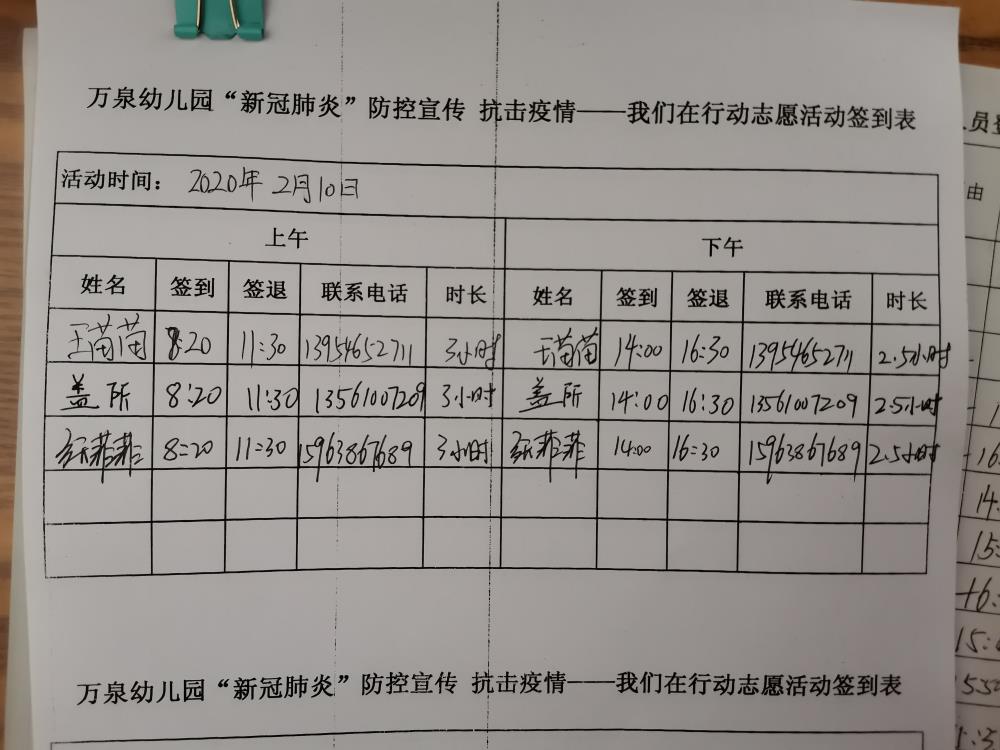 万泉幼儿园“新冠肺炎”防控宣传 抗击疫情——我们在行动志愿活动签到表
活动时间： 2020年 2月10日
上午 下午
姓名 签到 签退 联系电话 时长 姓名 签到 签退 联系电话 时长
王苗苗 8:20 11:30 13954652711 3小时 王苗苗 14:00 16:30 13954652711 2.5小时
盖所 8:20 11:30 13561007209 3小时 盖所 14:00 16:30 13561007209 2.5小时
菲菲 8:20 11:30 15963867689 3小时 菲菲 14:00 16:30 15963867689 2.5小时
万泉幼儿园“新冠肺炎”防控宣传 抗击疫情——我们在行动志愿活动签到表
员
由
16
14
15
16:
15: